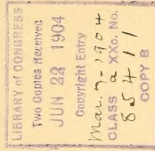 LIBRARY of CONGRESS
Two Copies Received
JUN 22 1904
Copyright Entry
Mar. 7-1904
CLASS a XXc. No.
85411
COPY B